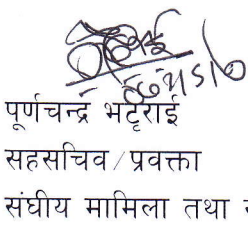 पूर्णचन्द्र भट्टराई
सहसचिव/प्रवक्ता
संघीय मामिला तथा